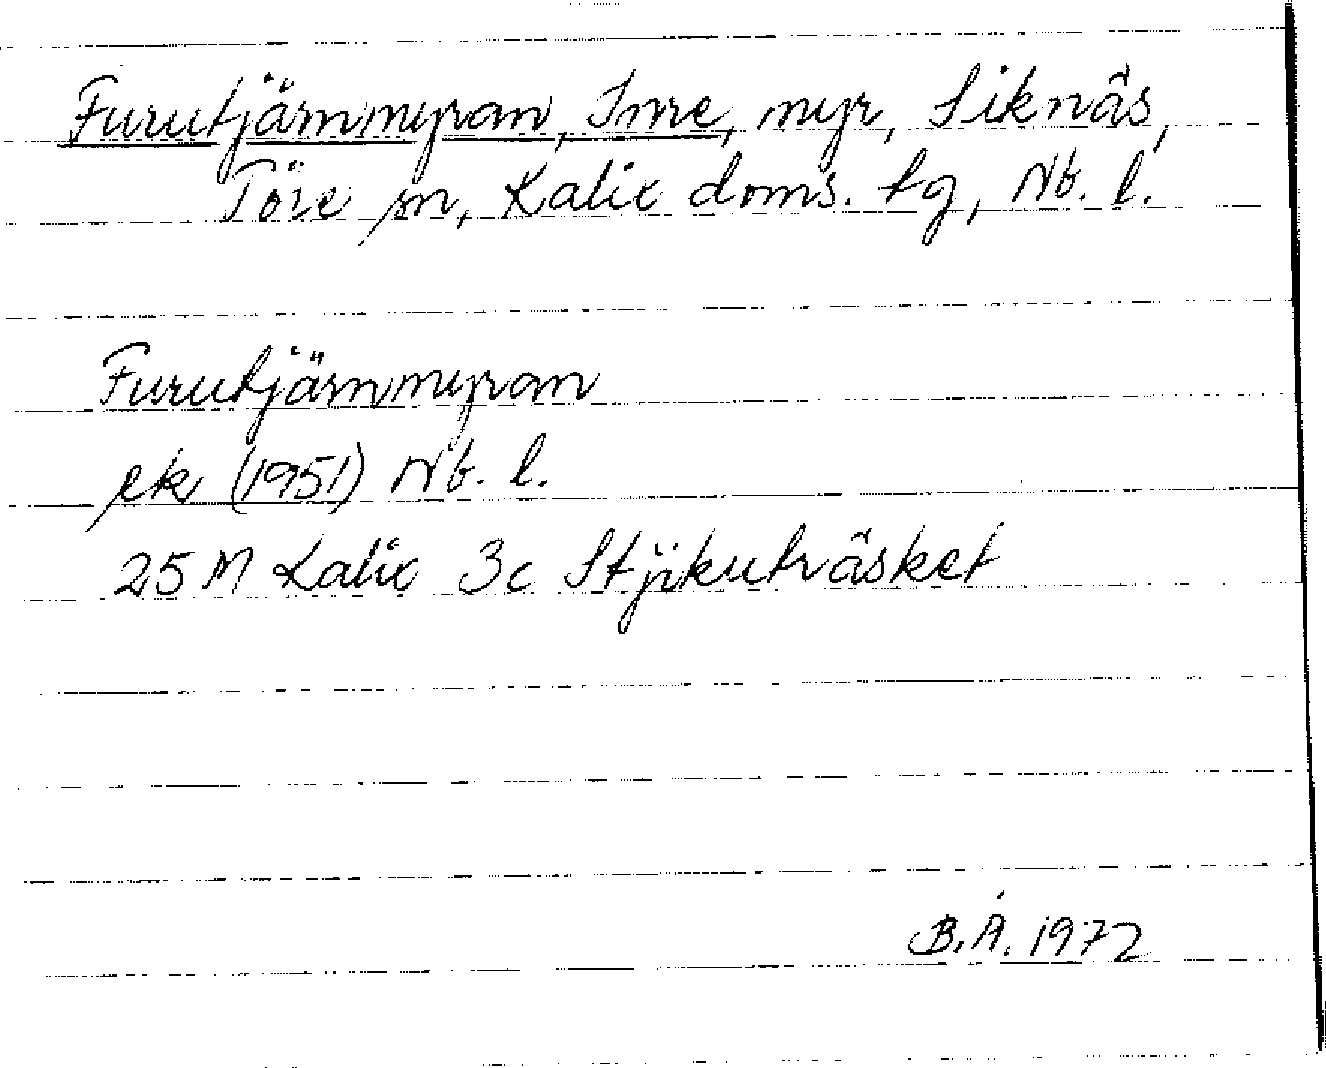 Furutjärnmyran, Inre, myr, Siknäs,
Töre sn, Kalix doms. tg, Nb. l.
Furutjärnmyran
ek (1951) Nb. l.
25 M Kalix 3c Stjikuträsket
B.Å. 1972